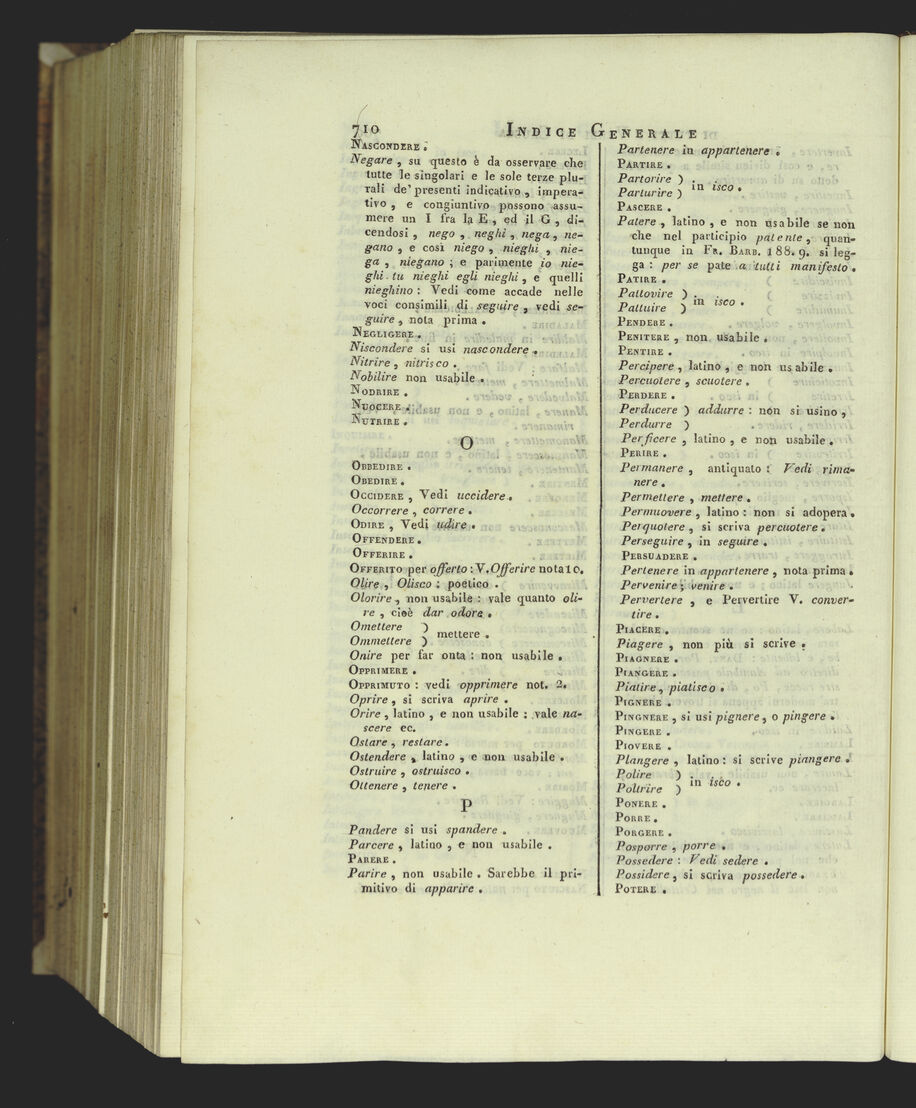 710
INDICE GENERALE
NASCONDERE .
Negare , su questo è da osservare che
tutte le singolari e le sole terze plu-
rali de' presenti indicativo , impera-
tivo , e congiuntivo possono assu-
mere un I fra la E , ed il G , di-
cendosi , nego , neghi , nega , ne-
gano , e così niego , nieghi , nie-
ga , niegano ; e parimente io nie-
ghi tu nieghi egli nieghi , e quelli
nieghino : Vedi come accade nelle
voci consimili di seguire , vedi se-
guire , nota prima .
NEGLIGERE .
Niscondere si usi nascondere .
Nitrire , nitrisco .
Nobilire non usabile .
NODRIRE .
NUOCERE .
NUTRIRE .
O
OBBEDIRE .
OBEDIRE .
OCCIDERE , Vedi uccidere .
Occorrere , correre .
ODIRE , Vedi udire .
OFFENDERE .
OFFERIRE .
OFFERITO per offerto : V. Offerire nota 10.
Olire , Olisco : poetico .
Olorire , non usabile : vale quanto oli-
re , cioè dar odore .
Omettere )
Ommettere ) mettere .
Onire per far onta : non usabile .
OPPRIMERE .
OPPRIMUTO : vedi opprimere not. 2.
Oprire , si scriva aprire .
Orire , latino , e non usabile : vale na-
scere ec.
Ostare , restare .
Ostendere , latino , e non usabile .
Ostruire , ostruisco .
Ottenere , tenere .
P
Pandere si usi spandere .
Parcere , latino , e non usabile .
PARERE .
Parire , non usabile . Sarebbe il pri-
mitivo di apparire .
Partenere in appartenere .
PARTIRE .
Partorire )
Parturire ) in isco .
PASCERE .
Patere , latino , e non usabile se non
che nel participio patente , quan-
tunque in FR. BARB. 188. 9. si leg-
ga : per se pate a tutti manifesto .
PATIRE .
Pattovire )
Pattuire ) in isco .
PENDERE .
PENITERE , non usabile .
PENTIRE .
Percipere , latino , e non usabile .
Percuotere , scuotere .
PERDERE .
Perducere ) addurre : non si usino ,
Perdurre )
Perficere , latino , e non usabile .
PERIRE .
Permanere , antiquato : Vedi rima-
nere .
Permettere , mettere .
Permuovere , latino : non si adopera .
Perquotere , si scriva percuotere .
Perseguire , in seguire .
PERSUADERE .
Pertenere in appartenere , nota prima .
Pervenire ; venire .
Pervertere , e Pervertire V. conver-
tire .
PIACERE .
Piagere , non più si scrive .
PIAGNERE .
PIANGERE .
Piatire , piatisco .
PIGNERE .
PINGNERE , si usi pignere , o pingere .
PINGERE .
PIOVERE .
Plangere , latino : si scrive piangere .
Polire )
Poltrire ) in isco .
PONERE .
PORRE .
PORGERE .
Posporre , porre .
Possedere : Vedi sedere .
Possidere , si scriva possedere .
POTERE .